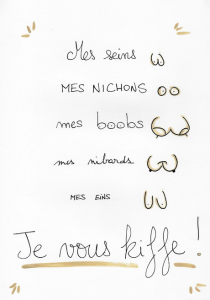 Mes seins
MES NICHONS
mes boobs
mes nibards
MES EINS
Je vous kiffe !